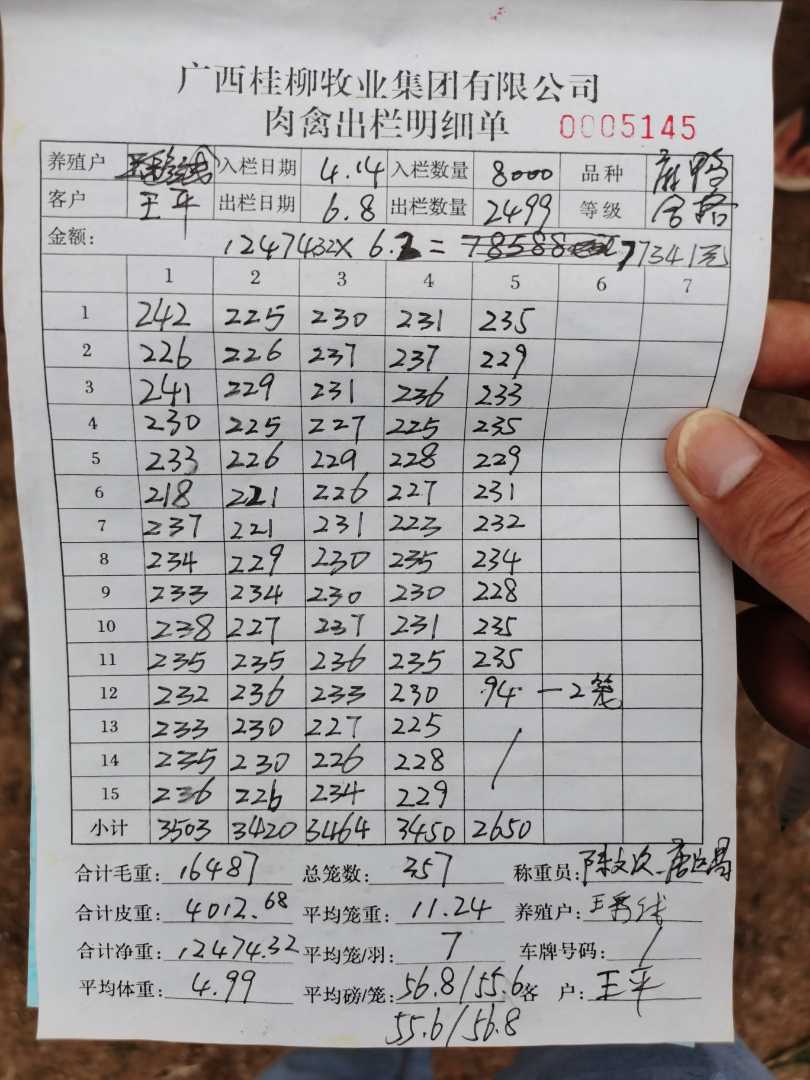 广西桂柳牧业集团有限公司
肉禽出栏明细单 0005145
养殖户 入栏日期 4.14 入栏数量 8000 品种 麻鸭
客户 王平 出栏日期 6.8 出栏数量 2499 等级 合格
金额: 12474.32 × 6.2 = 77341元
1 2 3 4 5 6 7
1 242 225 230 231 235
2 226 226 237 237 229
3 241 229 231 236 233
4 230 225 227 225 235
5 233 226 229 228 229
6 218 221 226 227 231
7 237 221 231 223 232
8 234 229 230 235 234
9 233 234 230 230 228
10 238 227 237 231 235
11 235 235 236 235 235
12 232 236 233 230 94 一2笼
13 233 230 227 225
14 235 230 226 228 /
15 236 226 234 229
小计 3503 3420 3464 3450 2650
合计毛重: 16487 总笼数: 357 称重员:
合计皮重: 4012.68 平均笼重: 11.24 养殖户:
合计净重: 12474.32 平均笼/羽: 7 车牌号码: /
平均体重: 4.99 平均磅/笼: 56.8/55.6 客 户: 王平
55.6/56.8